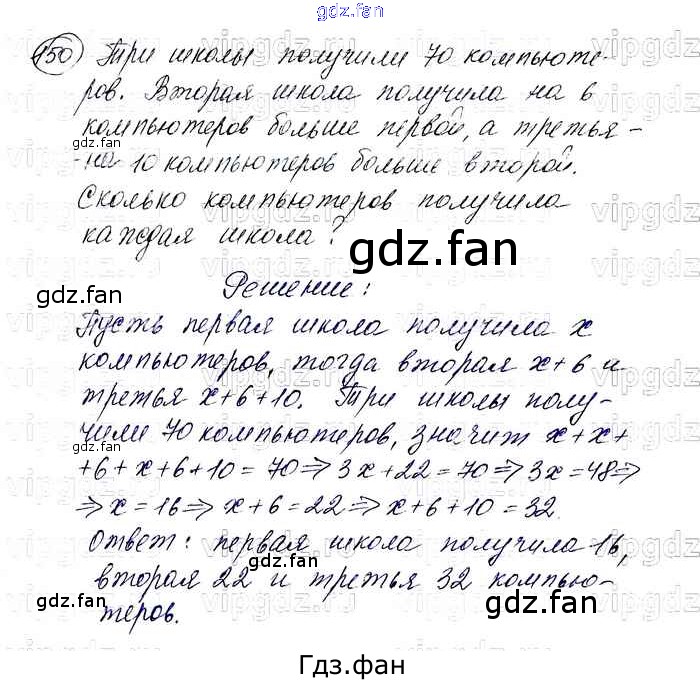 gdz.fan
150 Три школы получили 70 компьюте-
ров. Вторая школа получила на 6
компьютеров больше первой, а третья -
на 10 компьютеров больше второй.
Сколько компьютеров получила
каждая школа?
gdz.fan
gdz.fan
gdz.fan
Решение:
Пусть первая школа получила x
компьютеров, тогда вторая x+6 и
третья x+6+10. Три школы полу-
чили 70 компьютеров, значит x+x+
+6+x+6+10=70⇒3x+22=70⇒3x=48⇒
⇒x=16⇒x+6=22⇒x+6+10=32.
Ответ: первая школа получила 16,
вторая 22 и третья 32 компью-
теров.
gdz.fan
gdz.fan
Гдз.фан